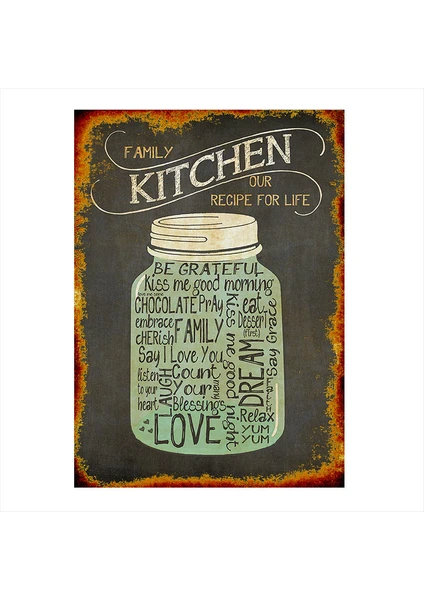 FAMILY
KITCHEN
OUR
RECIPE FOR LIFE
BE GRATEFUL
Kiss me good morning
CHOCOLATE PrAy
embrace
cHERisH
FAMILY
Say I Love You
listen
to your
heart
LAUGH
Count
Your
many
Blessings
LOVE
Kiss me good night
eat
Dessert
(first)
DREAM
Say Grace
Relax
YUM
YUM